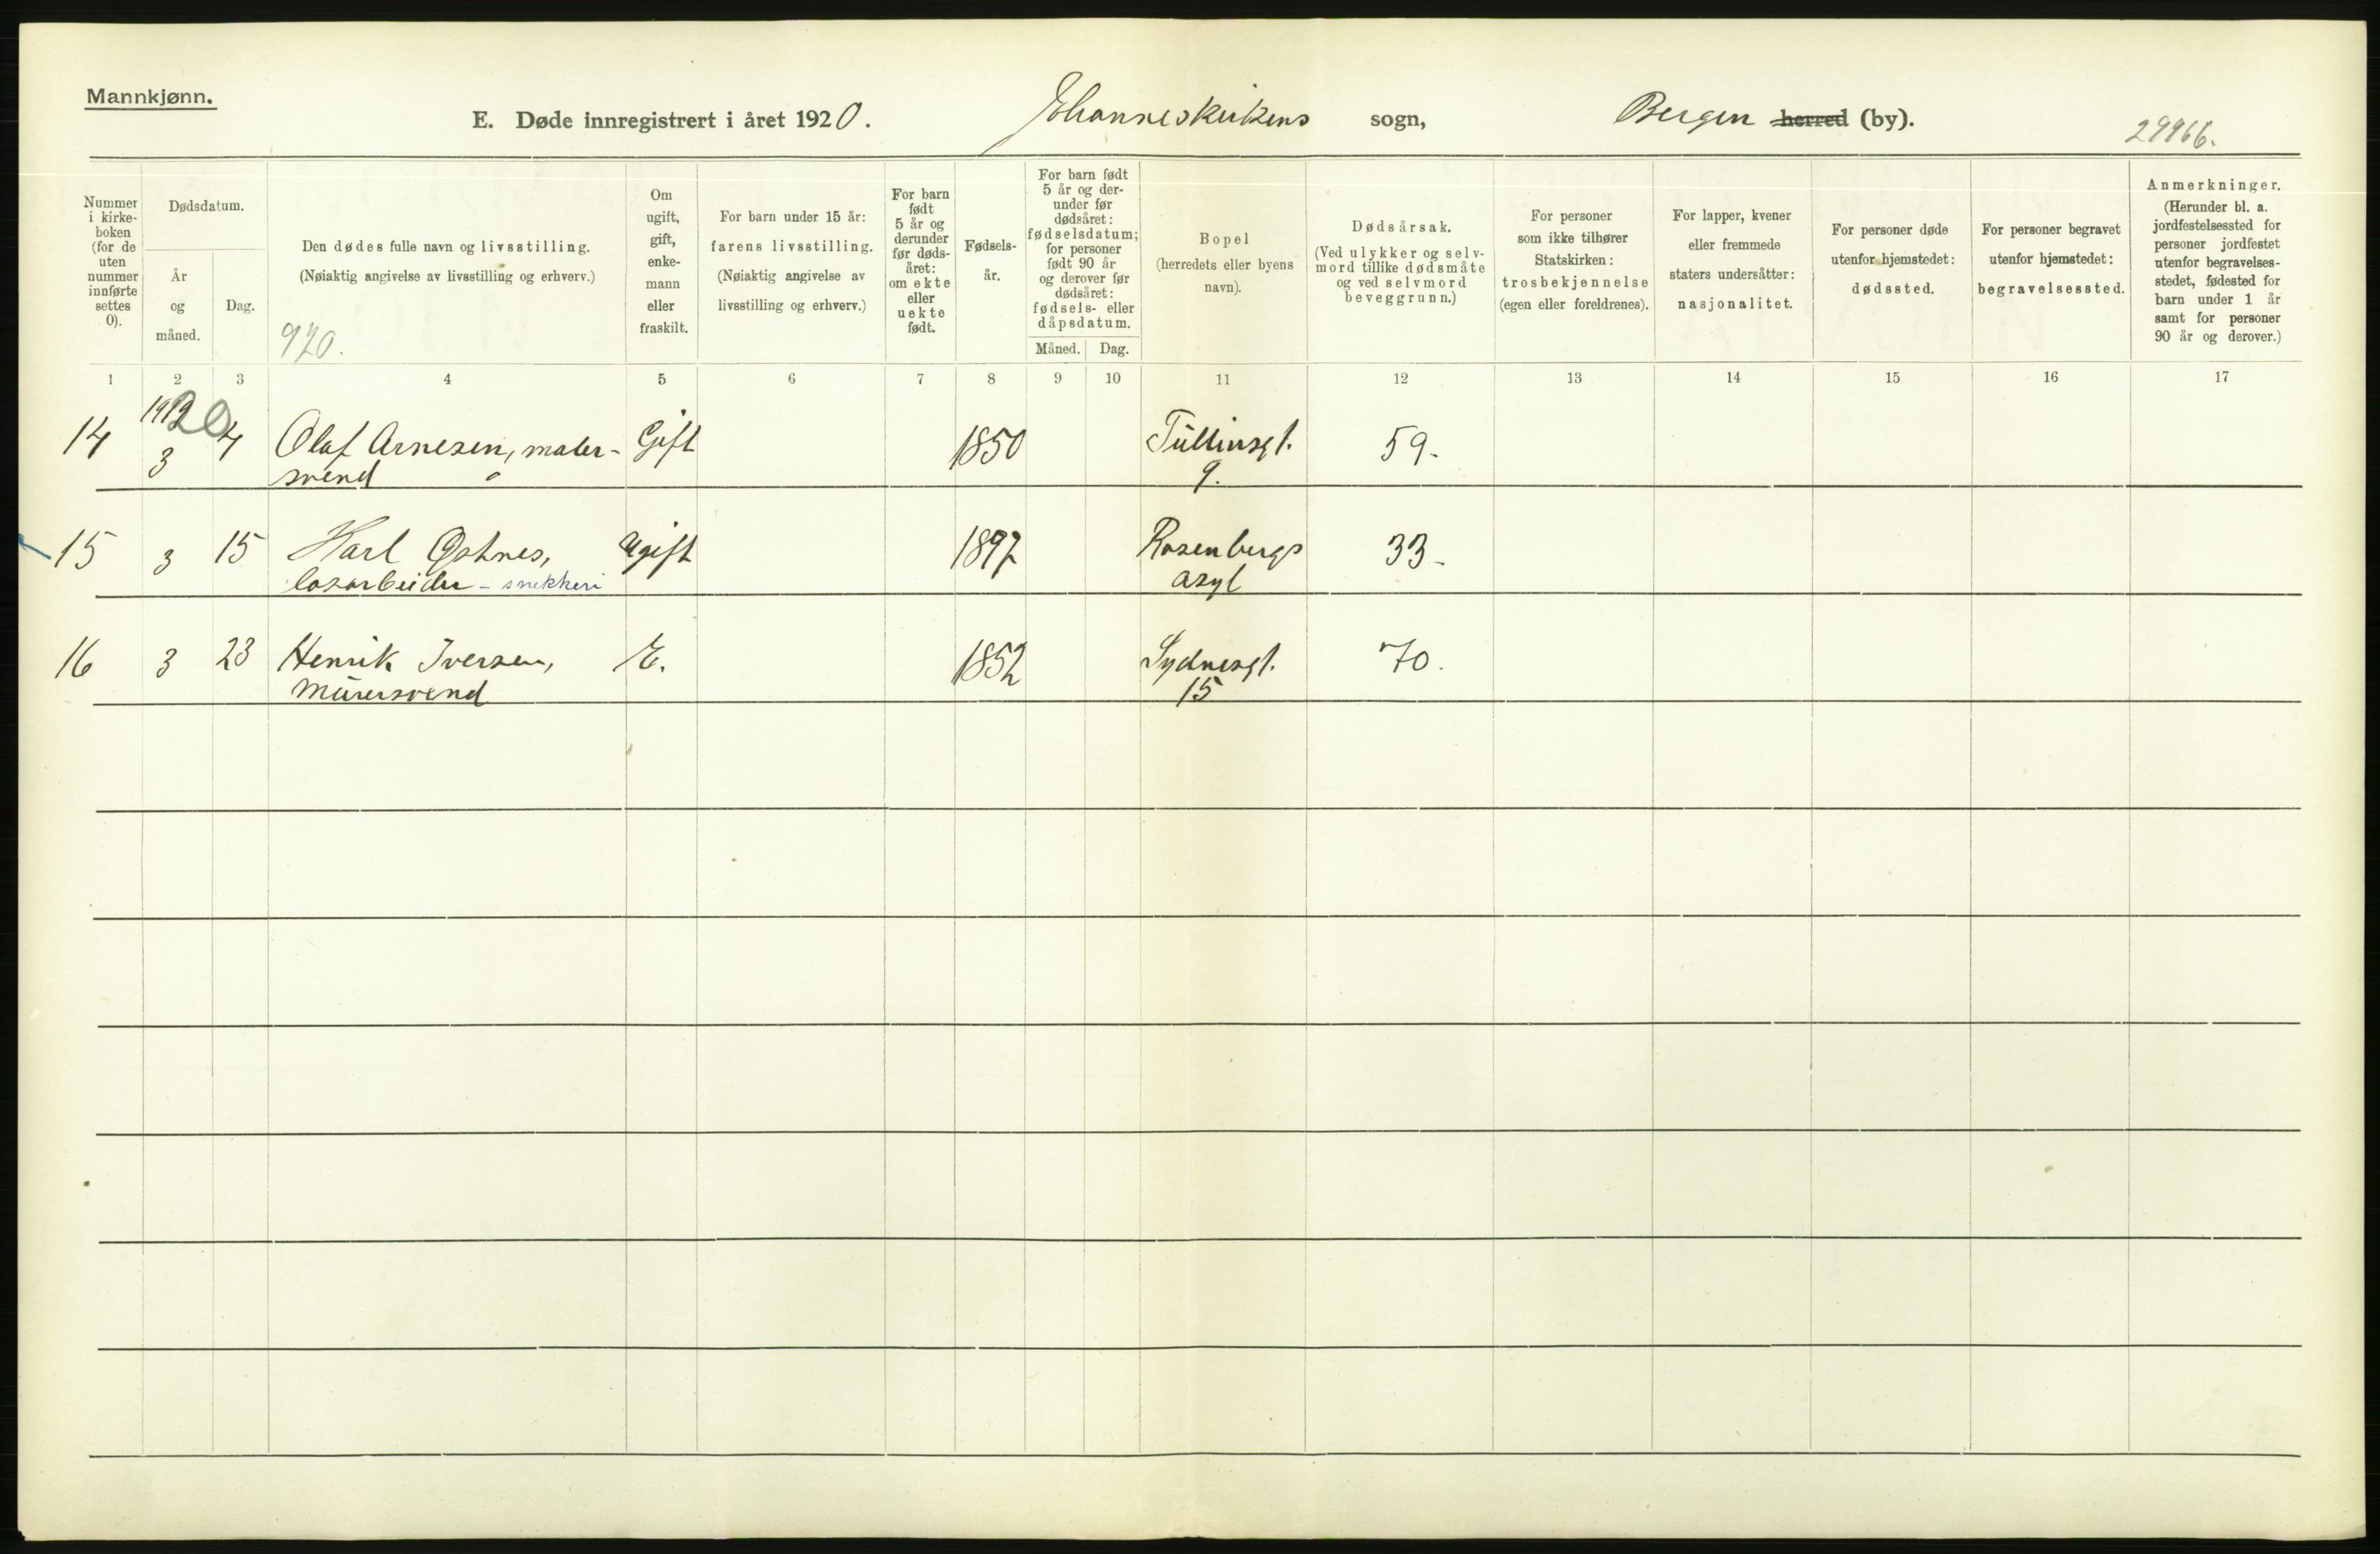 Mannkjønn.
E. Døde innregistrert i året 1920. Johanneskirkens sogn, Bergen herred (by).
29966.
Nummer i kirke- boken (for de uten nummer innførte settes 0).
Dødsdatum.
År og måned.
Dag.
Den dødes fulle navn og livsstilling.
(Nøiaktig angivelse av livsstilling og erhverv.)
920.
Om ugift, gift, enke- mann eller fraskilt.
For barn under 15 år:
farens livsstilling.
(Nøiaktig angivelse av
livsstilling og erhverv.)
For barn født 5 år og derunder før døds- året: om ekte eller uekte født.
Fødsels- år.
For barn født 5 år og der- under før dødsåret: fødselsdatum; for personer født 90 år og derover før dødsåret: fødsels- eller dåpsdatum.
Måned. Dag.
Bopel
(herredets eller byens
navn).
Dødsårsak.
(Ved ulykker og selv-
mord tillike dødsmåte
og ved selvmord
beveggrunn.)
For personer
som ikke tilhører
Statskirken:
trosbekjennelse
(egen eller foreldrenes).
For lapper, kvener
eller fremmede
staters undersåtter:
nasjonalitet.
For personer døde
utenfor hjemstedet:
dødssted.
For personer begravet
utenfor hjemstedet:
begravelsessted.
Anmerkninger.
(Herunder bl. a.
jordfestelsessted for
personer jordfestet
utenfor begravelses-
stedet, fødested for
barn under 1 år
samt for personer
90 år og derover.)
1 2 3 4 5 6 7 8 9 10 11 12 13 14 15 16 17
20
14 3 4 Olaf Arnesen, maler- Gift 1850 Tüllinsgt. 59.
svend 9.
15 3 15 Karl Ostnes, Ugift 1897 Rosenbergs 33.
løsarbeider - snekkeri asyl
16 3 23 Henrik Iversen, E. 1852 Sydnesgt. 70.
mürersvend 15